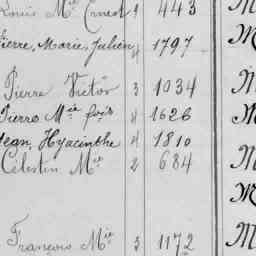 Louis Mie Ernest 1 443 M
Pierre, Marie, Julien 4 1797 M
Pierre Victor 3 1034 M
Pierre Mie 4 1626 M
Jean, Hyacinthe 4 1810
Célestin Mie 2 684 M
M
François Mie 3 1172 M